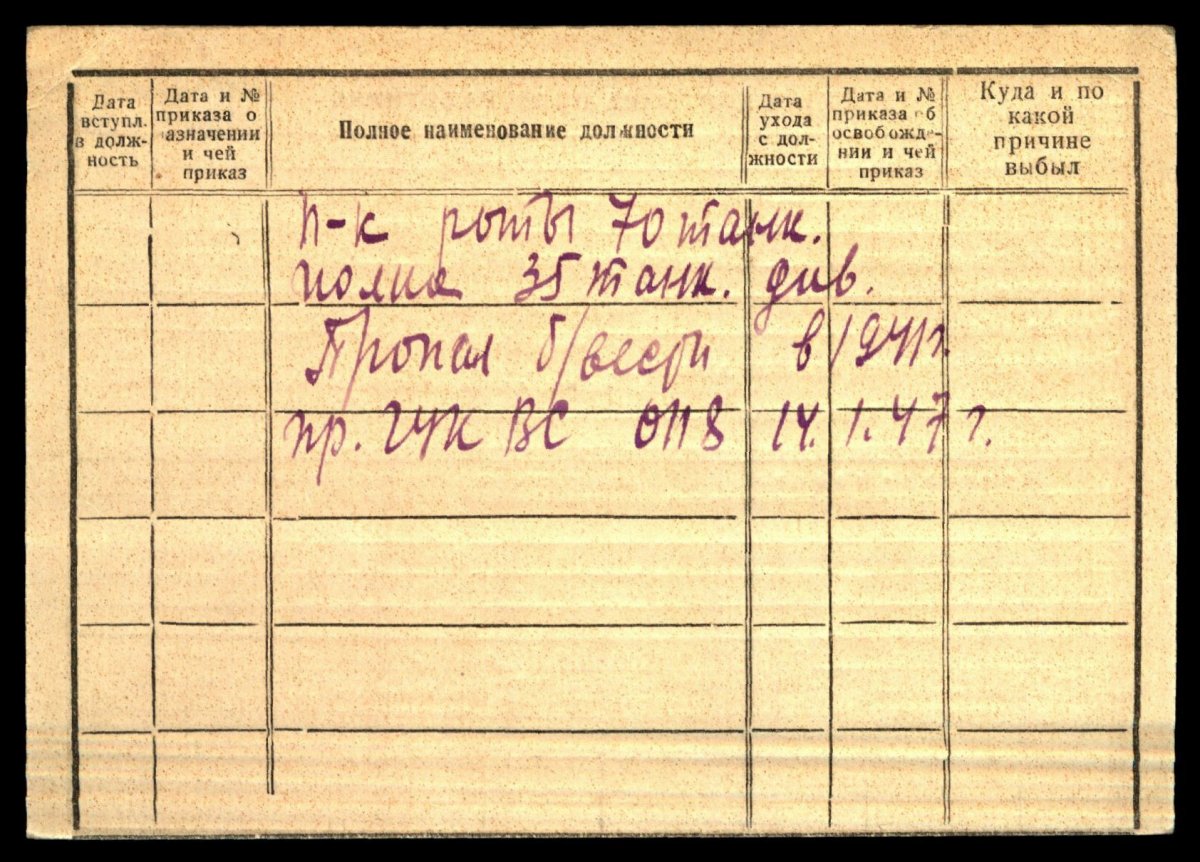 Дата вступл. в долж-ность
Дата и № приказа о азначении и чей приказ
Полное наименование должности
Дата ухода с дол-жности
Дата и № приказа об освобожде-нии и чей приказ
Куда и по какой причине выбыл
п-к роты 70 танк.
полка 35 танк. див.
Пропал б/вести в 1941г.
пр. ГУК ВС 0118 14.1.47 г.